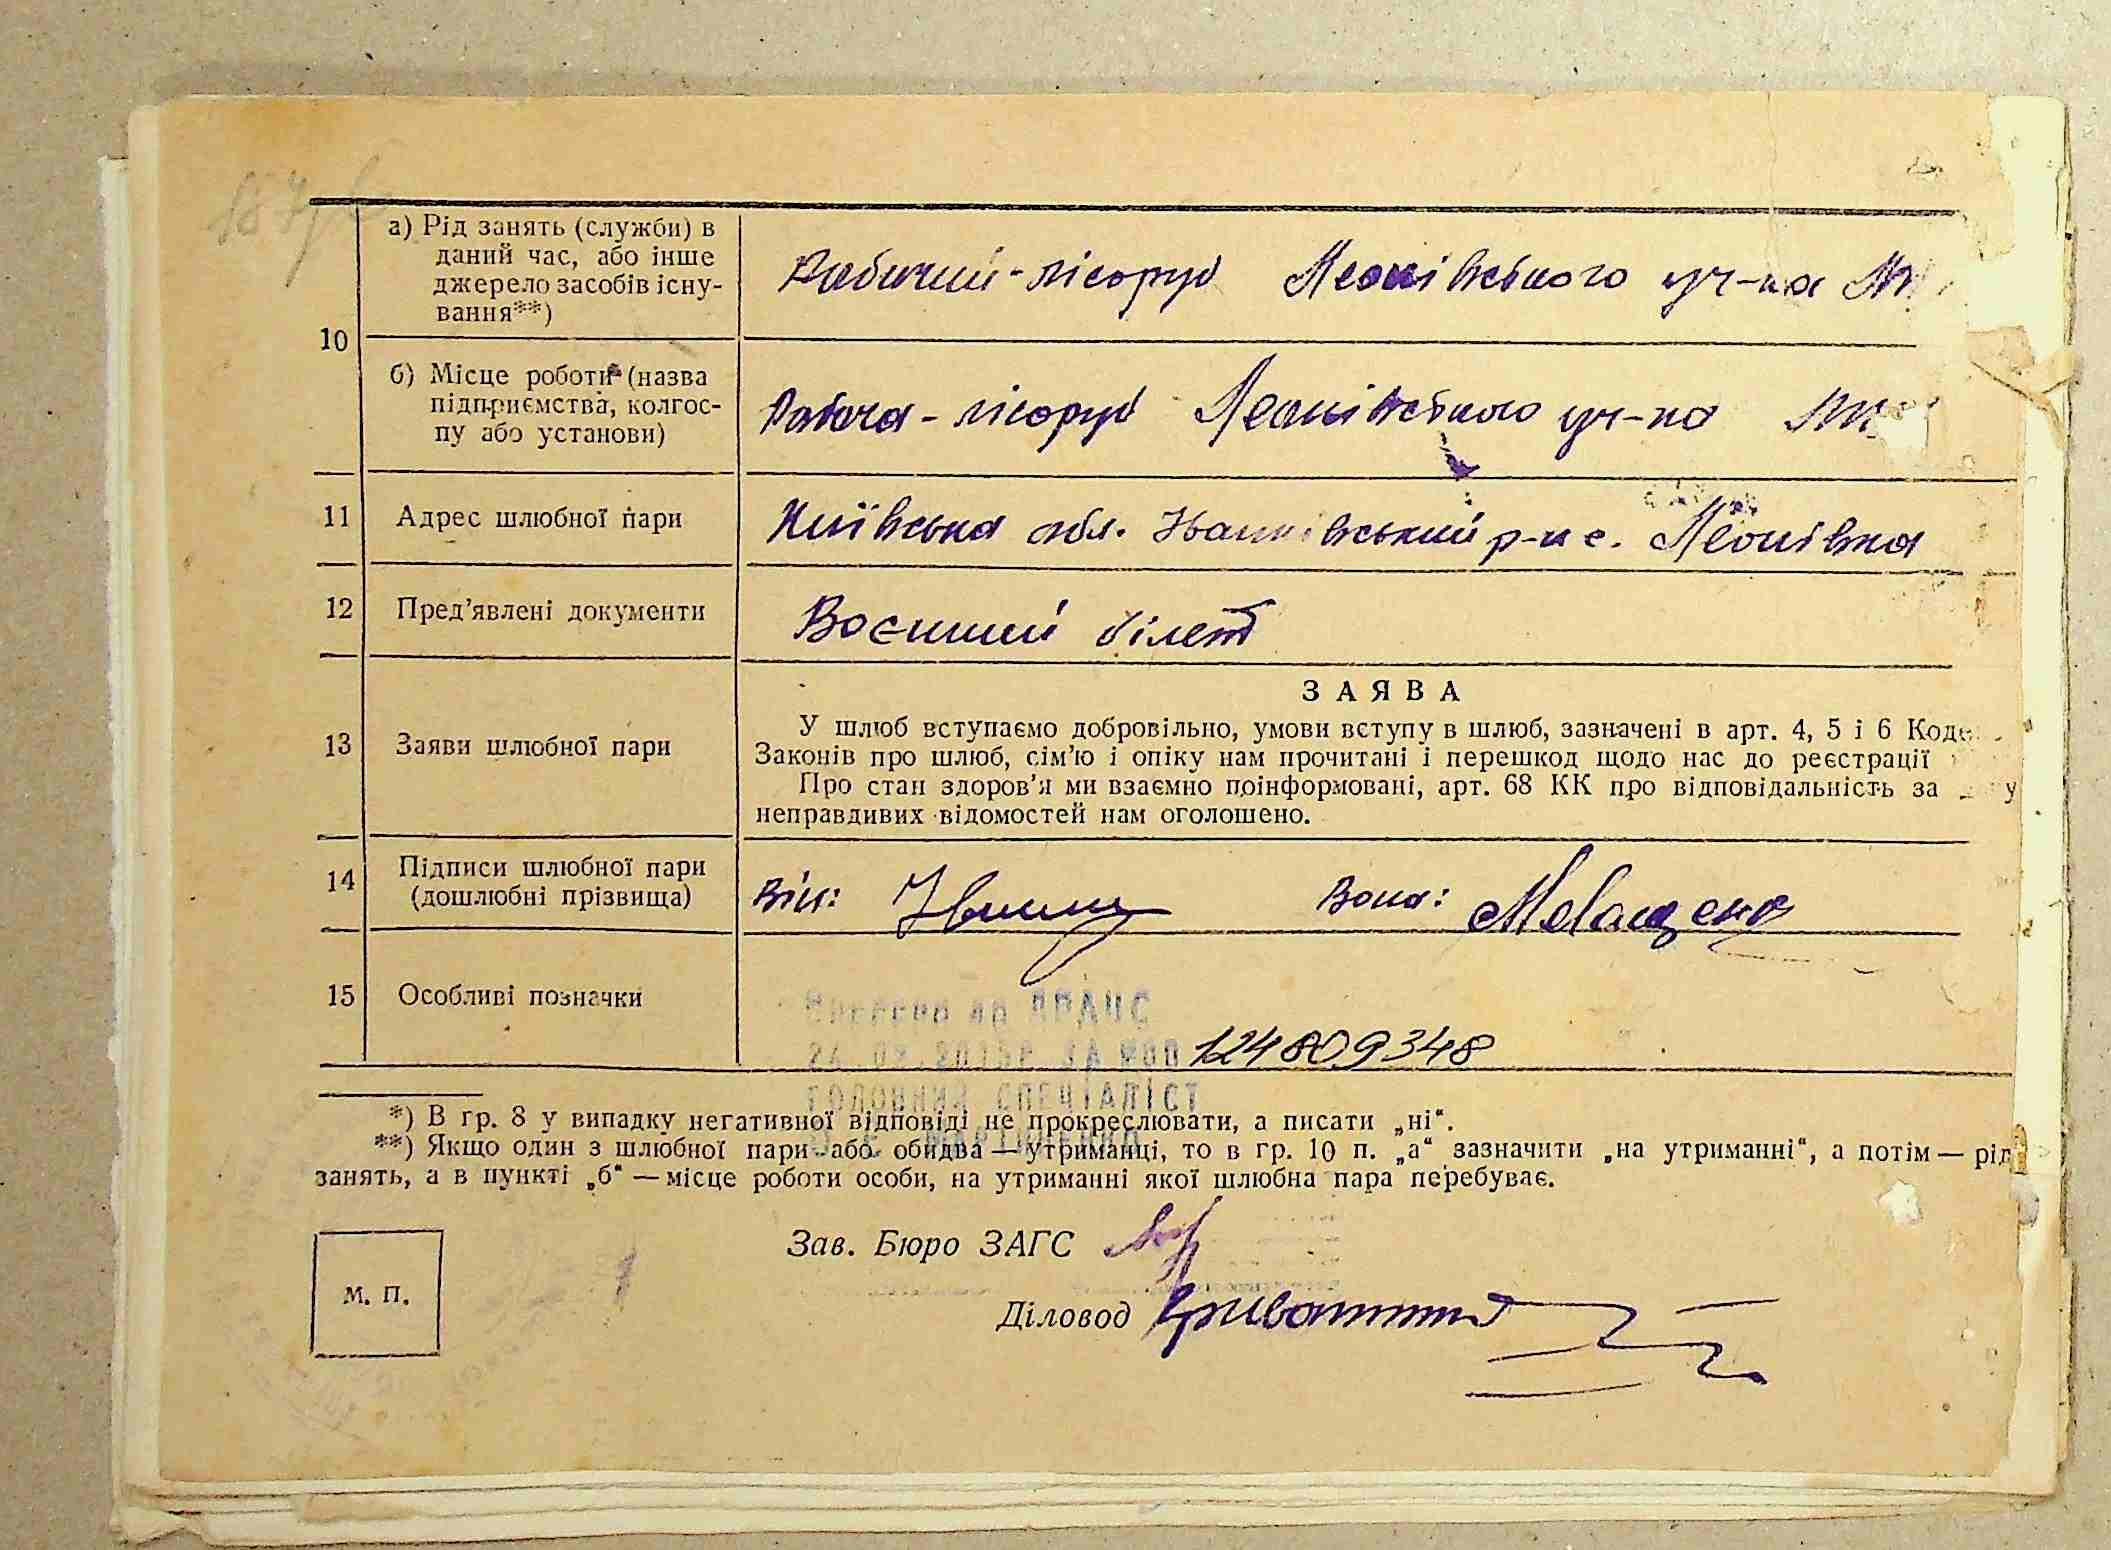 10
а) Рід занять (служби) в
даний час, або інше
джерело засобів існу-
вання**)
Рабочий-лісоруб Леонівського уч-ка
б) Місце роботи (назва
підприємства, колгос-
пу або установи)
Рабоча-лісоруб Леонівського уч-ка
11 Адрес шлюбної пари
Київська обл. Іванківський р-н с. Леонівка
12 Пред’явлені документи
Воєнний білет
13 Заяви шлюбної пари
ЗАЯВА
У шлюб вступаємо добровільно, умови вступу в шлюб, зазначені в арт. 4, 5 і 6
Законів про шлюб, сім’ю і опіку нам прочитані і перешкод щодо нас до реєстрації
Про стан здоров’я ми взаємно поінформовані, арт. 68 КК про відповідальність за
неправдивих відомостей нам оголошено.
14
Підписи шлюбної пари
(дошлюбні прізвища)
Він: Вона:
15 Особливі позначки
до ДРАЧС
124809348
ГОЛОВНИЙ СПЕЦІАЛІСТ
*) В гр. 8 у випадку негативної відповіді не прокреслювати, а писати „ні“.
**) Якщо один з шлюбної пари або обидва — утриманці, то в гр. 10 п. „а“ зазначити „на утриманні“, а потім — рід
занять, а в пункті „б“ — місце роботи особи, на утриманні якої шлюбна пара перебуває.
Зав. Бюро ЗАГС
М. П.
Діловод